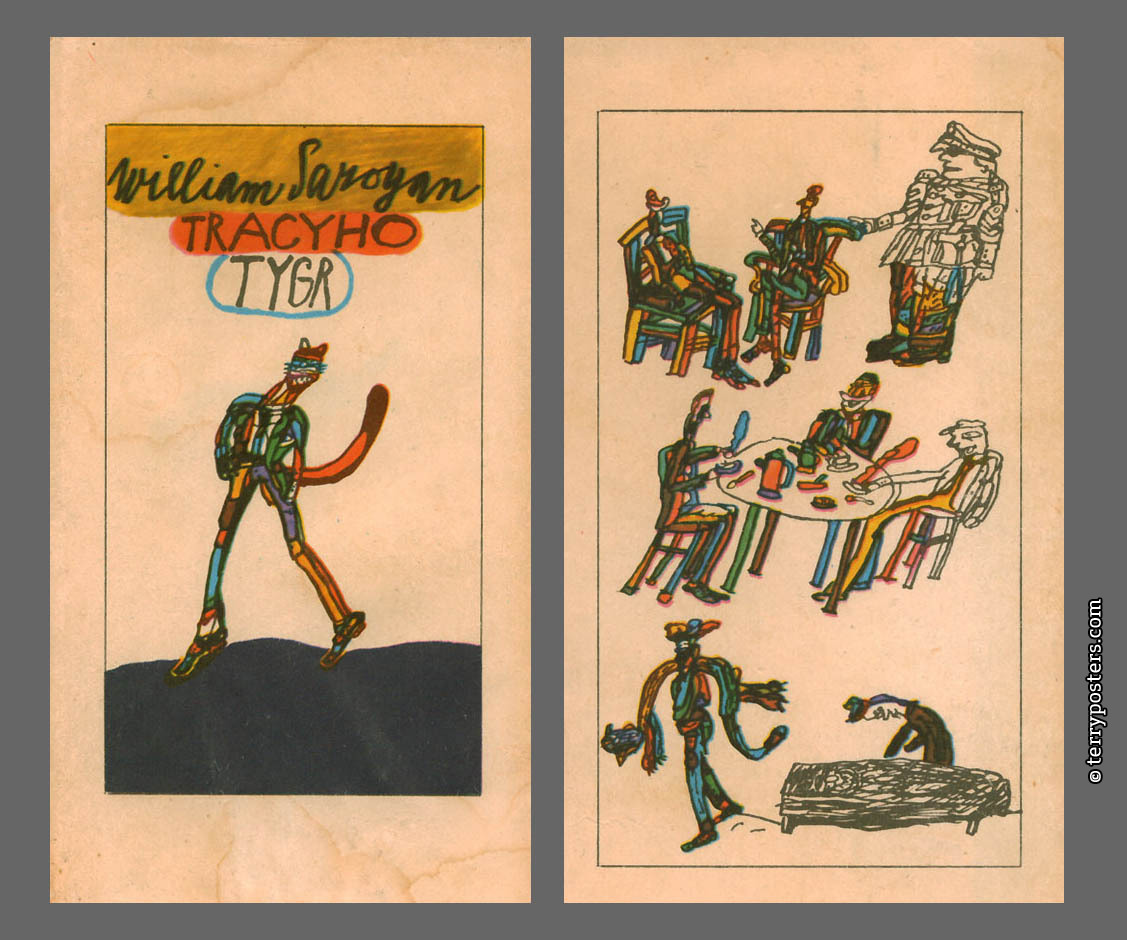 William Saroyan
TRACYHO
TYGR
© terryposters.com